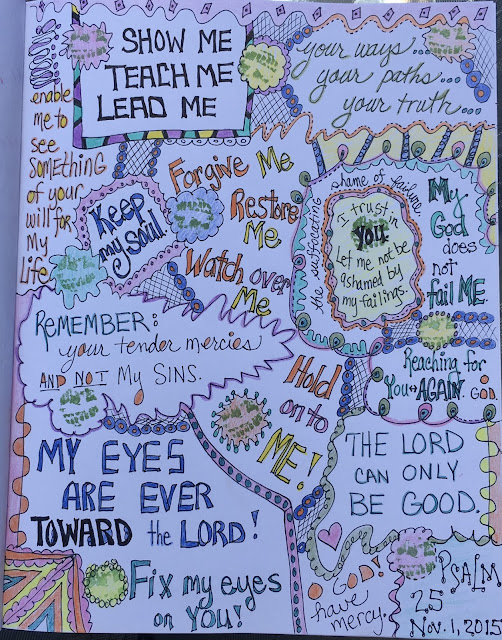 SHOW ME
TEACH ME
LEAD ME
your ways...
your paths...
your truth...
enable
me to
see
something
of your
will for
My
Life
Keep
my soul.
Forgive Me
Restore
Me
Watch over
Me
the suffocating
shame of failure
I trust in
YOU.
Let me not be
ashamed by
my failings.
My
God
does
not
fail ME.
REMEMBER:
your tender mercies
AND NOT My SINS.
Reaching for
You AGAIN. GOD.
Hold
on to
ME!
MY EYES
ARE EVER
TOWARD the LORD!
THE LORD
CAN ONLY
BE GOOD.
Fix my eyes
on YOU!
O GOD!
have
mercy.
PSALM
25
Nov. 1, 2015